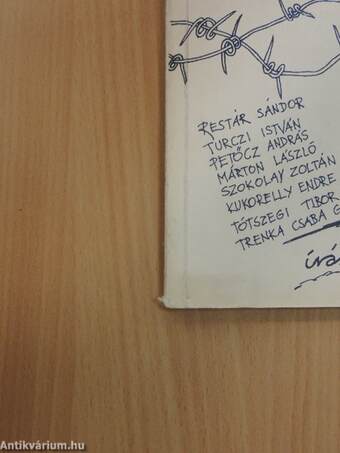 RESTÁR SÁNDOR
TURCZI ISTVÁN
PETŐCZ ANDRÁS
MÁRTON LÁSZLÓ
SZOKOLAY ZOLTÁN
KUKORELLY ENDRE
TÓTSZEGI TIBOR
TRENKA CSABA G
írá
Antikvárium.hu